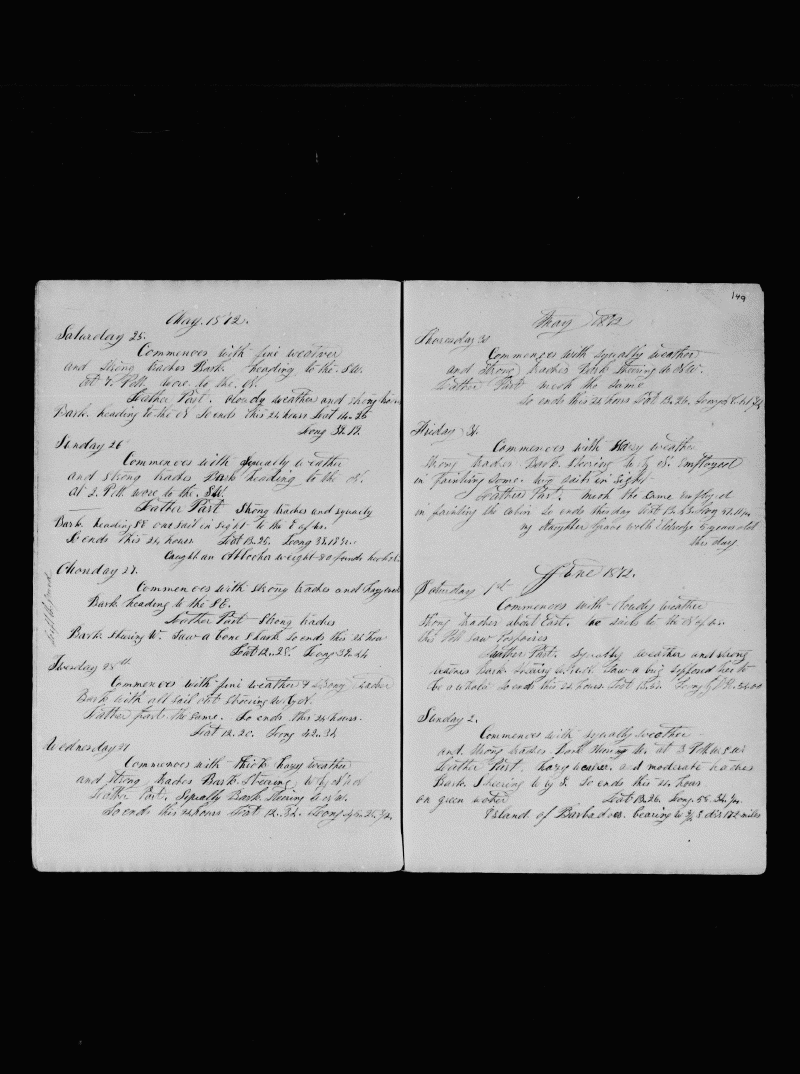 May. 1872.
Saturday 25.
Commences with fine weather
and strong trades Bark heading to the. SW.
at 7. P.M. wore to the. N.
Lather Part. cloudy weather and strong
Bark. heading to the N So ends this 24 hours Lat 14..26
Long 38.17.
Sunday 26
Commences with squaly weather
and strong trades Bark heading to the N.
at 2. P.M. wore to the. SW.
Lather Part strong trades and squaly
Bark. heading SE one sail in sight to the E of us.
So ends this 24 hours Lat 13..25. Long 38.18
Caught an Albicher weight 80 pounds
Monday 27.
Commences with strong trades and hazy
Bark heading to the SE.
Lother Part Strong trades
Bark. stearing W. Saw a bone Shark So ends this 24 hours
Lat 12..28. Long 39..24
Tuesday 28th
Commences with fine weather & strong trades
Bark with all sail set stearing W by N.
Lather part the same. So ends this 24 hours.
Lat 12.20. Long 42..32
Wednesday 29
Commences with thick hazy weather
and strong trades Bark Stearing W by N
Lather Part. Squally Bark Stearing W
So ends this 24 hours Lat 12..32. Long 45..25.
149
May 1872
Thursday 30
Commences with squally weather
and strong trades Bark Stearing W
Lather Part much the same
so ends this 24 hours Lat 13..26. Long
Friday 31.
Commences with Hazy weather
strong trades Bark Stearing W by N. employed
in painting some. brig sail in sight
Lather Part. much the same employed
in painting the cabin So ends this day Lat 13..23 Long
my daughter 5 years old
this day
June 1872.
Saturday 1st
Commences with cloudy weather
strong trades about East. two sails to the N of us.
this PM saw Porpoises
Lather Part. squally weather and strong
trades Bark Stearing Saw a brig supposed her to
be a whaler So ends this 24 hours Lat Long
Sunday 2.
Commences with squally weather
and. strong trades Bark Stearing W. at 3 P.M.
Lather Part. hazy weather. and moderate trades
Bark. Stearing W by S. So ends this 24 hours
on green water Lat 13..26. Long. 56..32
Island of Barbadoes. bearing W by S dis 172 miles